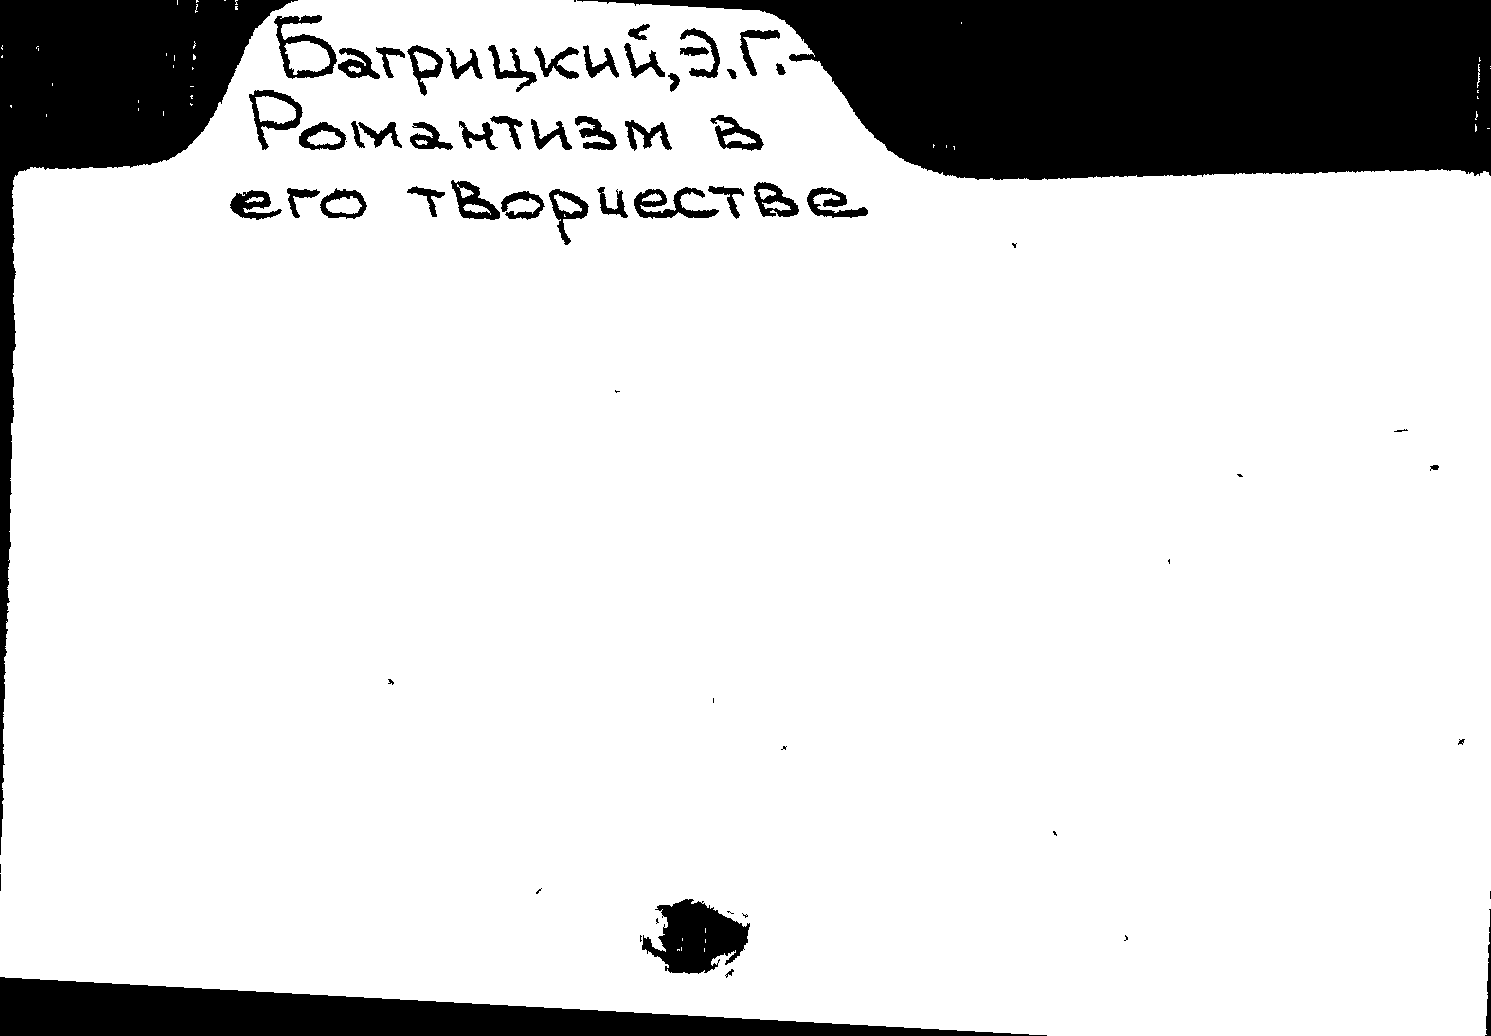 Багрицкий, Э.Г.-
Романтизм в
его творчестве